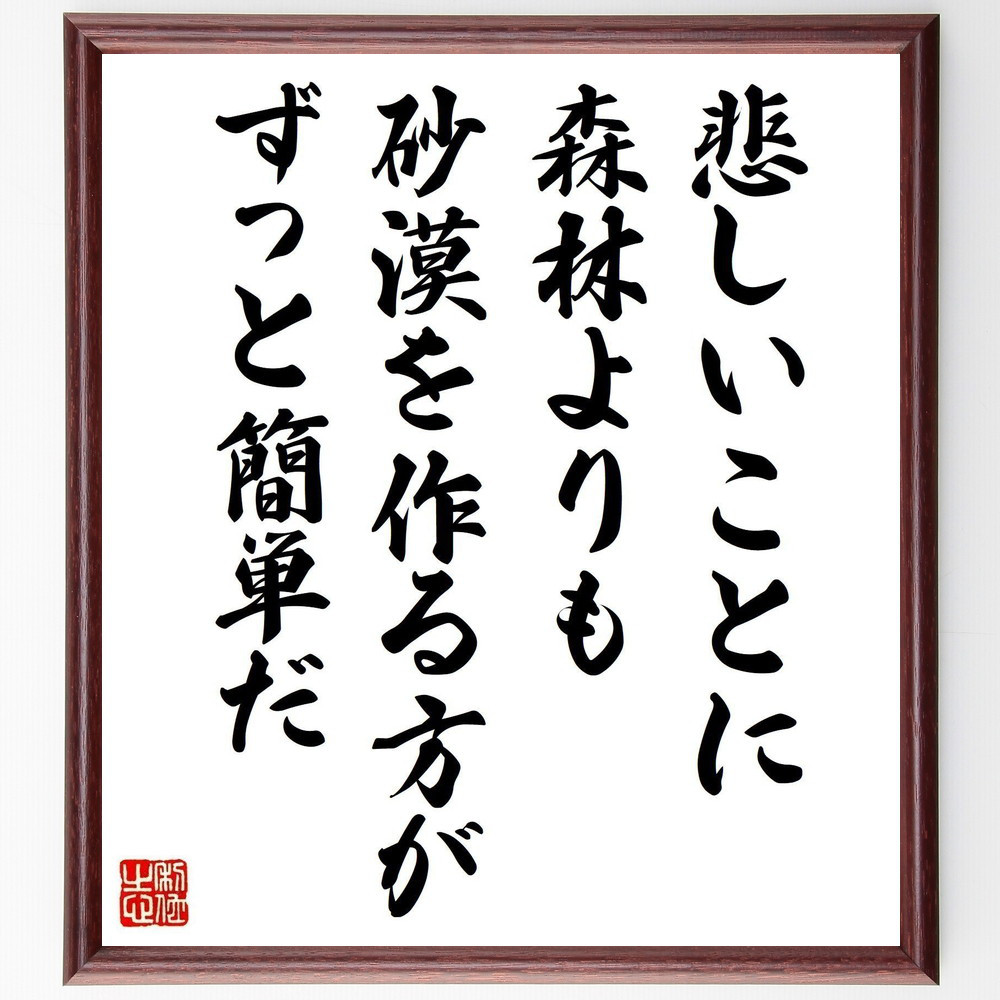 悲しいことに
森林よりも
砂漠を作る方が
ずっと簡単だ